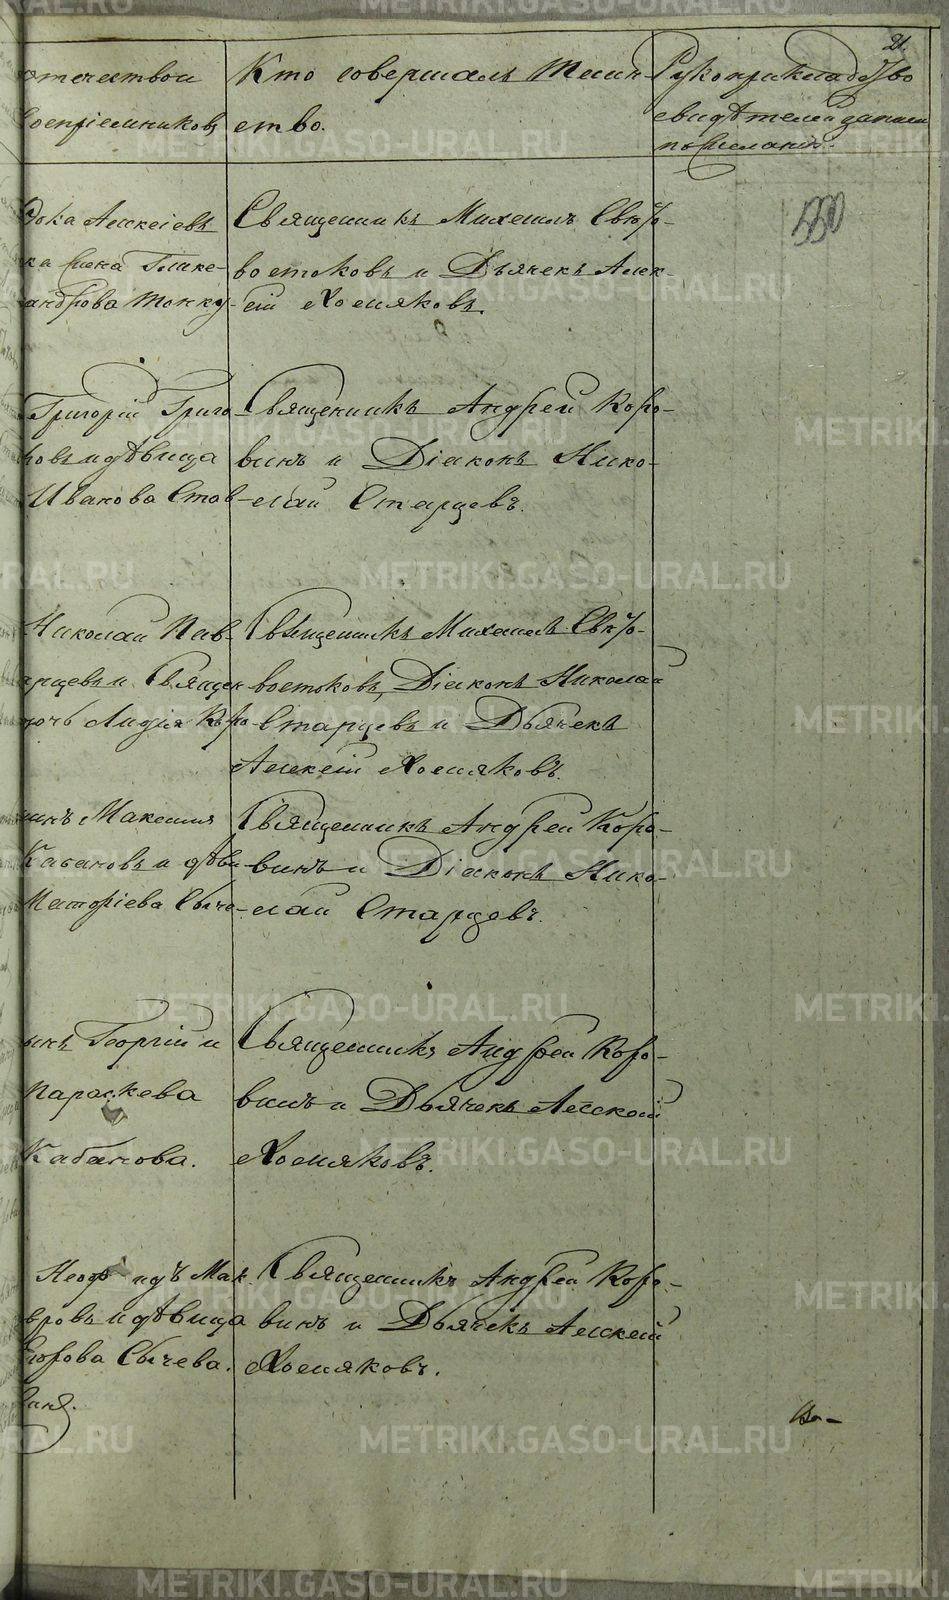 21.
отчество и
воспріемниковъ
Кто совершалъ таин-
ство.
Рукоприкладство
свидѣтелей записи
по желанію.
Алексіевъ
жена Глике-
андрова
Священникъ Михаилъ Свѣто-
востоковъ и Дьячекъ Алек-
сій Хомяковъ.
Григорій Григо-
ковъ и дѣвица
Иванова Стов-
Священникъ Андрей Коро-
винъ и Діаконъ Нико-
лай Старцевъ.
Николай Пав-
арцевъ и Священ
дочь Лидія Коро-
Священникъ Михаилъ Свѣто-
востоковъ, Діаконъ Николай
Старцевъ и Дьячекъ
Алексій Хомяковъ.
инъ Максимъ
Кабановъ и дѣви-
Сыче-
Священникъ Андрей Коро-
винъ и Діаконъ Нико-
лай Старцевъ.
ынъ Георгій и
Параскева
Кабанова.
Священникъ Андрей Коро-
винъ и Дьячекъ Алексій
Хомяковъ.
Неоф идъ Мак
вровъ и дѣвица
Егорова Сычева.
Священникъ Андрей Коро-
винъ и Дьячекъ Алексій
Хомяковъ.
METRIKI.GASO-URAL.RU